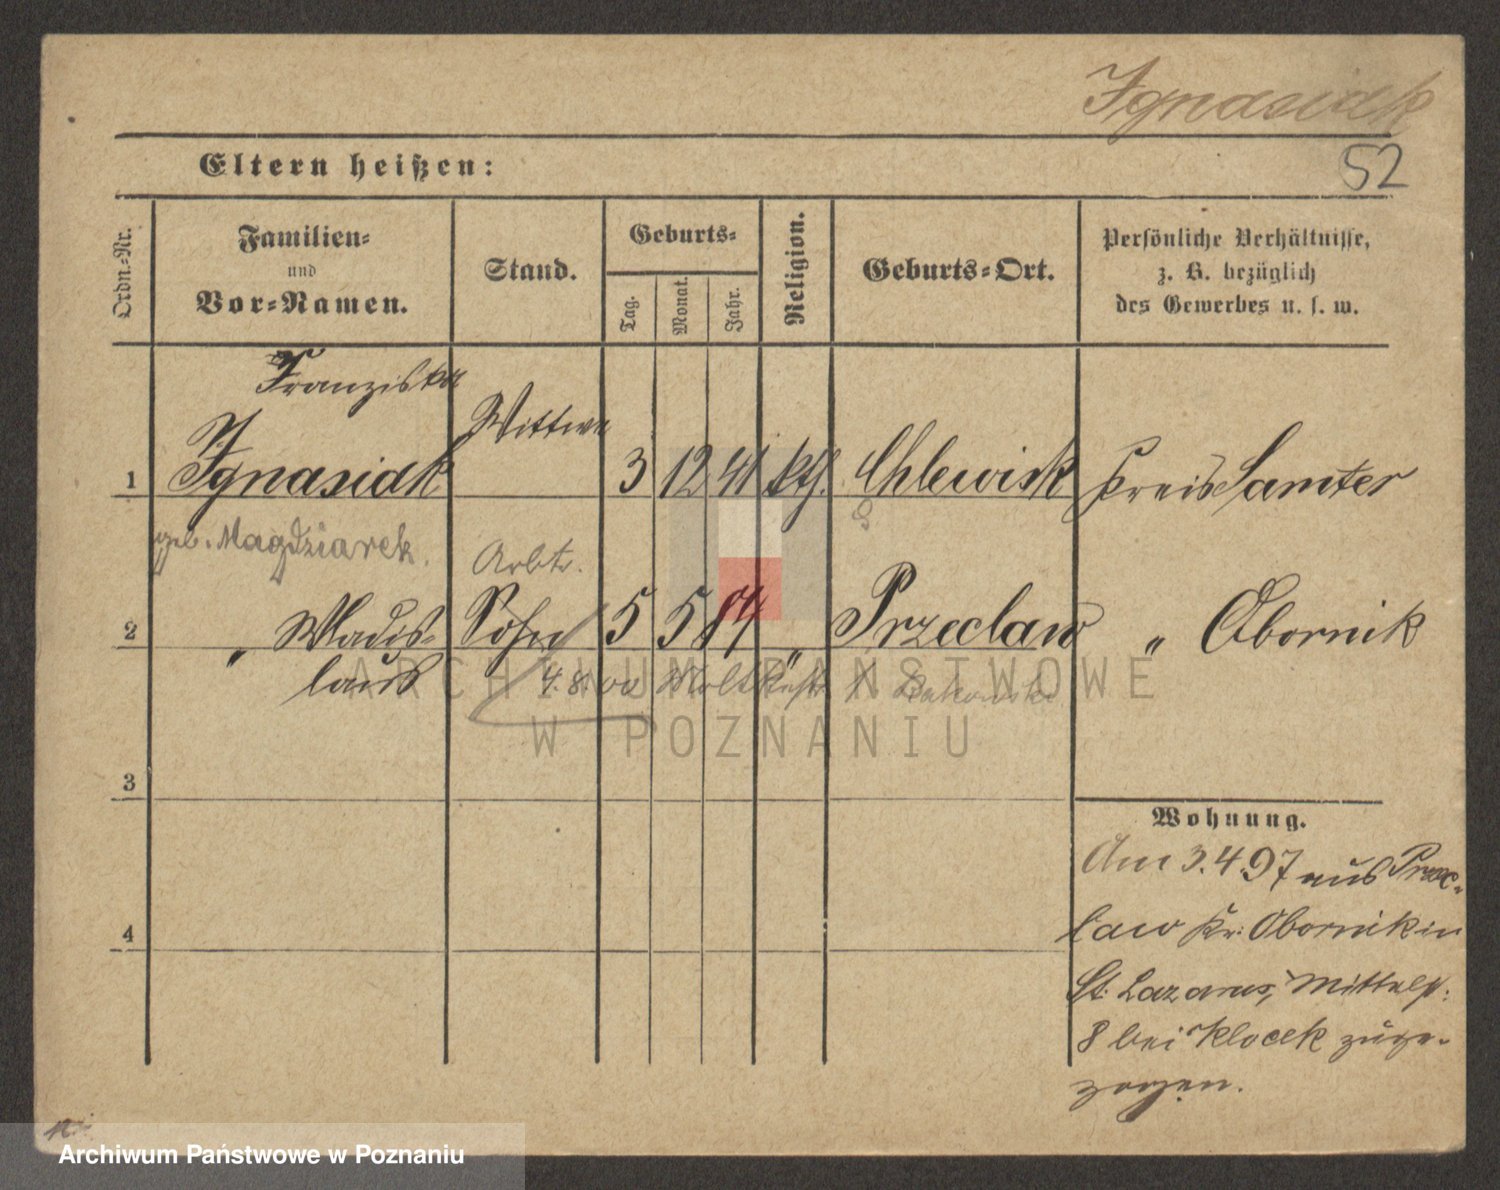 Ignasiak
52
Eltern heißen:
Ordn.-Nr.
Familien-
und
Vor-Namen.
Stand.
Geburts-
Tag.
Monat.
Jahr.
Religion.
Geburts-Ort.
Persönliche Verhältnisse,
z. B. bezüglich
des Gewerbes u. s. w.
Franziska
1 Ignasiak Wittwe 3 12 41 kth. Chlewisk Kreis Samter
geb. Magdziarek. Arbtr.
2 " Wladis- Sohn 5 5 84 " Przeclaw " Obornik
laus 4.8.00 Moltkestr.
3
4
Wohnung.
Am 3.4.97 aus Przec-
law Kr. Obornik in
St. Lazarus, Mittelst.
8 bei Klocek zuge-
zogen.
ARCHIWUM PAŃSTWOWE
W POZNANIU
Archiwum Państwowe w Poznaniu